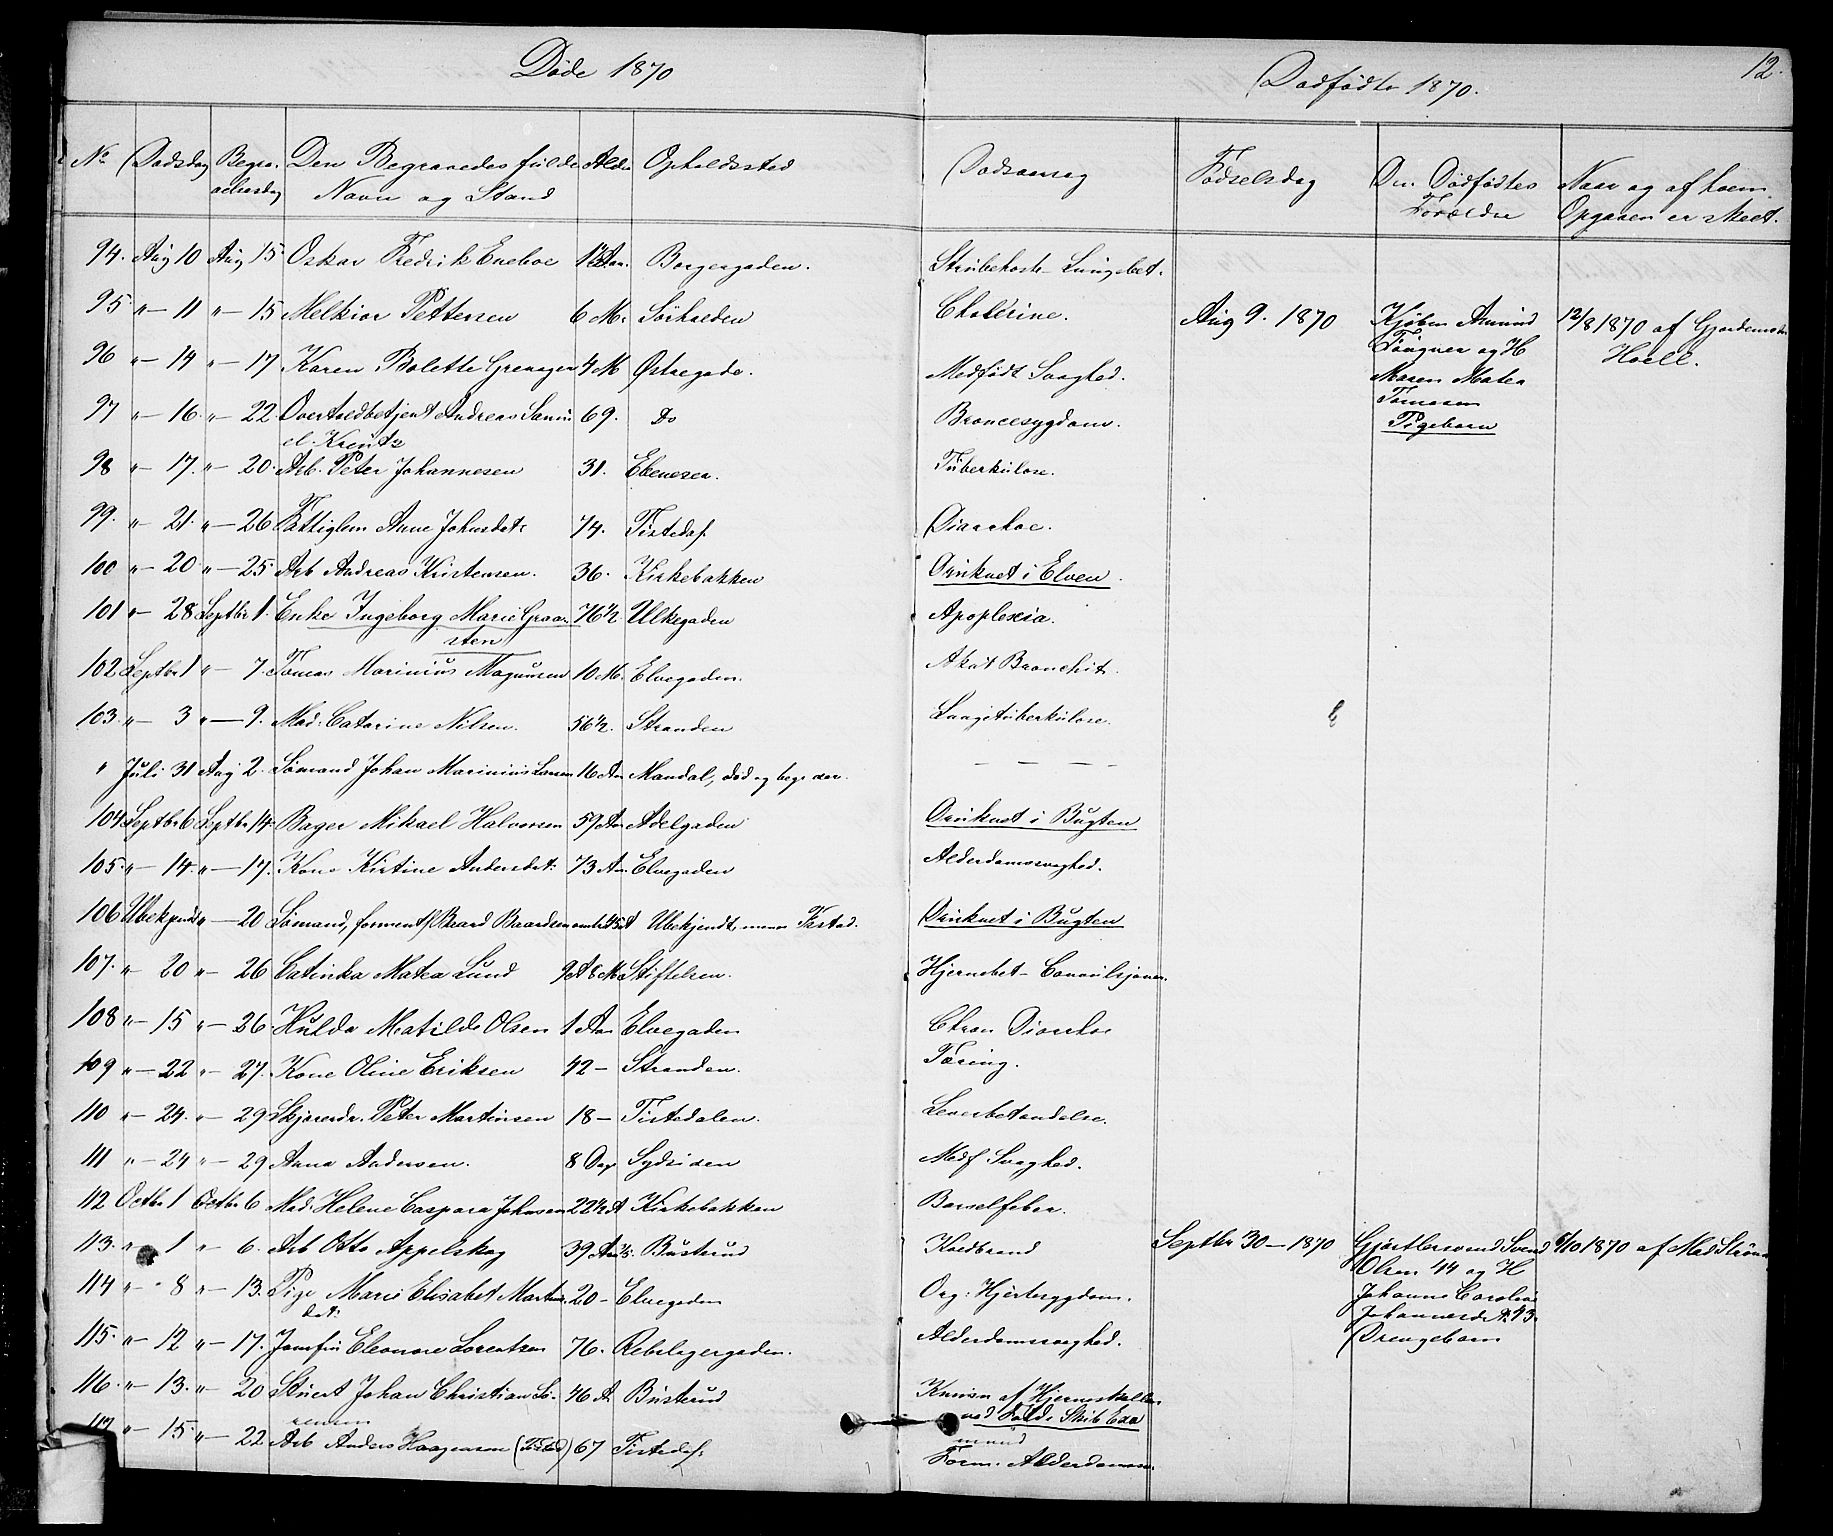 Døde 1870
Dødfødte 1870.
12.
No Dødsdag Begravelsesdag Den Begravedes fulde Navn og Stand Alder Opholdssted Dødsaarsag Fødselsdag Den Dødfødtes Forældre Naar og af hvem Opgaven er skeet.
94. Aug 10 Aug 15. Oskar Fredrik Eneboe Borgergaden. Strubehoste Lungebet.
95 " — 11 " — 15 Melkior Pettersen 6 M. Sørhalden Cholerine. Aug 9. 1870 Kjøbm Amund 12/8 1870 af Gjordemoder
Fougner og H Hoell.
96 " — 14 " — 17 Karen Bolette 4 M Østregade. Medfødt Svaghed. Maren Matea
97 " — 16. " — 22 Overtoldbetjent Andreas Samu 69. Do Broncesygdom. Tomesen
el Kreutz Pigebarn
98 " — 17. " — 20. Arb. Peter Johannesen 31. Ebeneser. Tuberkulose.
99. " — 21. " — 26 Fattiglem Anne Johnsdat: 74. Tistedal. Diarrhoe.
100 " — 20 " — 25 Arb Andreas Kristensen. 36. Kirkebakken Druknet i Elven.
101 " — 28 Septbr 1. Enke Ingeborg Marie Graar 76 1/2. Ulkegaden Apoplexia.
sten
102 Septbr 1 " — 7. Tomas Marinius Magnusen 10 M. Elvegaden. Akut Bronchit.
103. " — 3 " — 9. Mad. Catarine Nilsen. 56 1/2. Stranden Lungetuberkulose.
" Juli 31 Aug 2. Sømand Johan Marinius Larsen 16 Aar Mandal, død og begr der. — — —
104 Septbr 6 Septbr 14. Bager Mikael Halvorsen 59 Aar Adelgaden Druknet i Bugten
105. " — 14. " — 17. Kone Kirtine Andersdat: 73 Aar Elvegaden Alderdomssvaghed.
106 Ubekjendt " — 20 Sømand, forment Beard Baardsen omtr 45 A Ubekjendt, menes Tisted. Druknet i Bugten
107. " — 20 " — 26 Catinka Matea Lund 9 A 8 M. Stiftelsen. Hjernebet— Convulsjoner.
108 " — 15 " — 26 Hulda Matilde Olsen 1 Aar Elvegaden Chron Diarrhoe
109 " — 22 " — 27. Kone Oline Eriksen 42 — Stranden. Tæring.
110 " — 24. " — 29 Peter Martinsen 18 — Tistedalen. Leverbetændelse.
111 " — 24 " — 29 Anna Andersen. 8 Dag Sydsiden Medf Svaghed.
112 Octbr 1 Octbr 6 Mad. Helene Caspara Johnsen 22 1/2 A Kirkebakken Barselfeber.
113. " — 1 " — 6. Arb Otto Appelskog 39 Aar Busterud Koldbrand Septbr 30 — 1870 Gjørtlersvend Svend 6/10 1870 af Mad Strøm
Olsen 44 og H
114 " — 8 " — 13. Pige Marie Elisabet Martins 20 — Elvegaden Org: Hjertesygdom. Johanne Caroline
dat: Johannesd A. 43.
115. " — 12 " — 17. Jomfru Eleonore Lorentzen 76. Rebslagergaden. Alderdomssvaghed. Drengebarn
116. " — 13. " — 20 Stuert Johan Christian Sø- 46 A. Busterud Knusn af Hjerneskallen
rensen ved Fald i Skib Exa
117 " — 15. " — 22. Arb Anders Haagensen (Tisted) 67 Tistedal: Form. Alderdomssv.